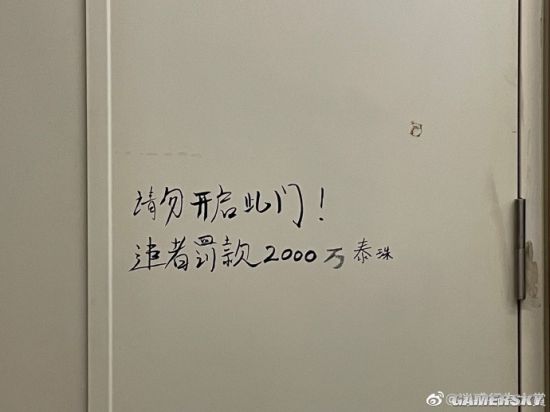 请勿开启此门!
违者罚款2000万泰珠
GAMERSKY